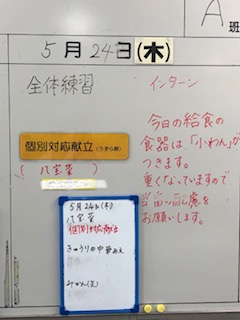 A班
5月24日(木)
全体練習
インターン
今日の給食の
食器は「小わん」が
つきます。
重くなっていますので
お願いします。
個別対応献立(うずら卵)
(八宝菜)
5月24日(木)
八宝菜
個別対応献立
きゅうりの中華あえ
みかん(缶)